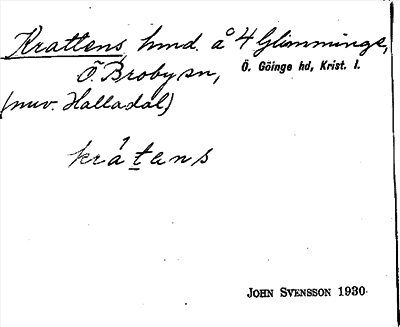 Krattens, hmd. å 4 Glimminge,
Ö. Broby sn, Ö. Göinge hd, Krist. l.
(nuv. Halladal)
kràtens
JOHN SVENSSON 1930